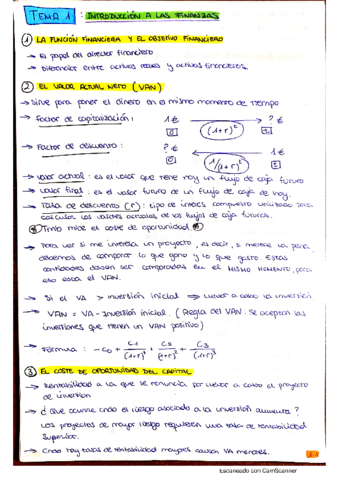 TEMA 1 : INTRODUCCIÓN A LAS FINANZAS
1 LA FUNCIÓN FINANCIERA Y EL OBJETIVO FINANCIERO
→ El papel del director financiero
→ Diferencia entre activos reales y activos financieros.
2 EL VALOR ACTUAL NETO (VAN)
→ Sirve para poner el dinero en el mismo momento de tiempo
→ Factor de capitalización : 1€ → ?€
0 (1+r)^t t
→ Factor de descuento : ?€ ← 1€
0 1/(1+r)^t t
→ Valor actual : es el valor que tiene hoy un flujo de caja futuro
→ Valor final : es el valor futuro de un flujo de caja de hoy.
→ Tasa de descuento (r) : tipo de interés compuesto utilizado para
calcular los valores actuales de los flujos de caja futuros.
Tmb mide el coste de oportunidad
→ Para ver si me interesa un proyecto, es decir, si merece la pena,
debemos de comparar lo que gano y lo que gasto. Estas
cantidades deben ser comparadas en el MISMO MOMENTO, para
eso está el VAN.
→ Si el VA > Inversión inicial → Llevar a cabo la inversión
→ VAN = VA - Inversión inicial. (Regla del VAN. Se aceptan las
inversiones que tienen un VAN positivo)
→ Fórmula : - C0 + C1/(1+r)^1 + C2/(1+r)^2 + C3/(1+r)^3
3 EL COSTE DE OPORTUNIDAD DEL CAPITAL
→ Rentabilidad a la que se renuncia por llevar a cabo el proyecto
de inversión
→ ¿ Que ocurre cndo el riesgo asociado a la inversión aumenta ?
Los proyectos de mayor riesgo requieren una tasa de rentabilidad
superior.
→ Cndo hay tasas de rentabilidad mayores causan VA menores.
Escaneado con CamScanner